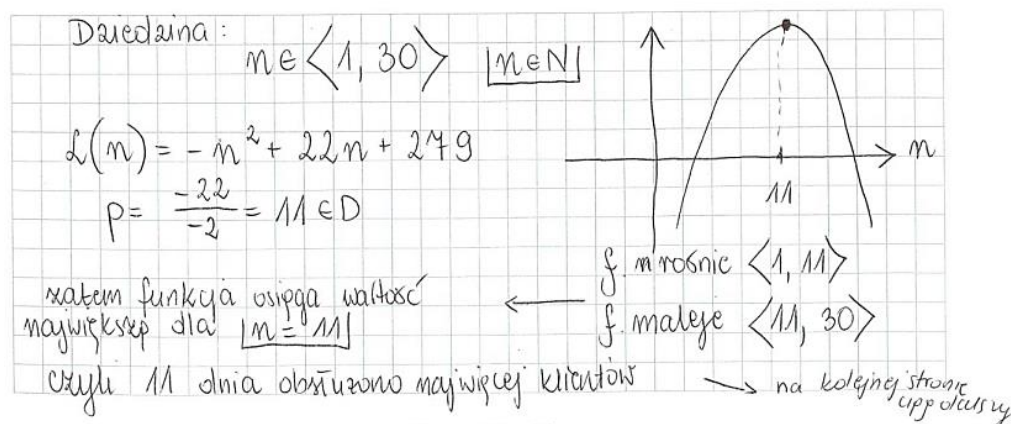 Dziedzina:
n ∈ ⟨1, 30⟩ n ∈ N
L(n) = - n² + 22n + 279
p = -22/-2 = 11 ∈ D
n
11
f. rośnie ⟨1, 11⟩
f. maleje ⟨11, 30⟩
zatem funkcja osiąga wartość
największą dla n = 11
czyli 11 dnia obsłużono najwięcej klientów → na kolejnej stronie
dalszy